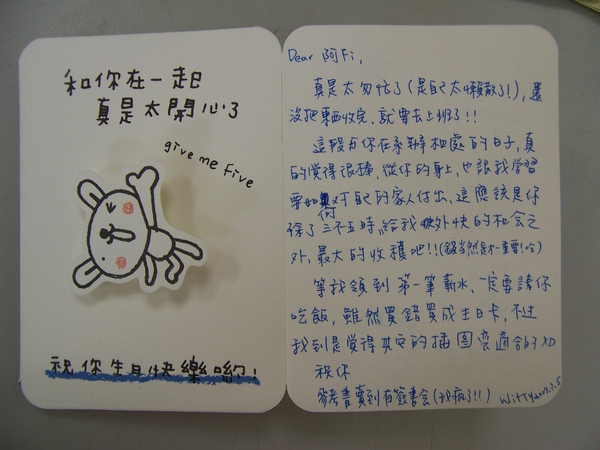 和你在一起
真是太開心了
give me Five
祝你生日快樂喲!
Dear 阿Fi,
真是太匆忙了(是自己太懶散了!),還
沒把東西收完、就要去上班了!!
這段與你在系辦相處的日子,真
的覺得很棒、從你的身上,也讓我學習
要如何對自己的家人付出、這應該是你
除了三不五時,給我賺外快的机会之
外,最大的收穫吧!!(錢當然是才重要!哈)
等我領到第一筆薪水、一定要請你
吃飯,雖然買錯買成生日卡,不过
我到是覺得其它的插圖蠻適合的XD
祝你
參考書賣到有簽書会(我瘋了!!) Witty 2007.3.5